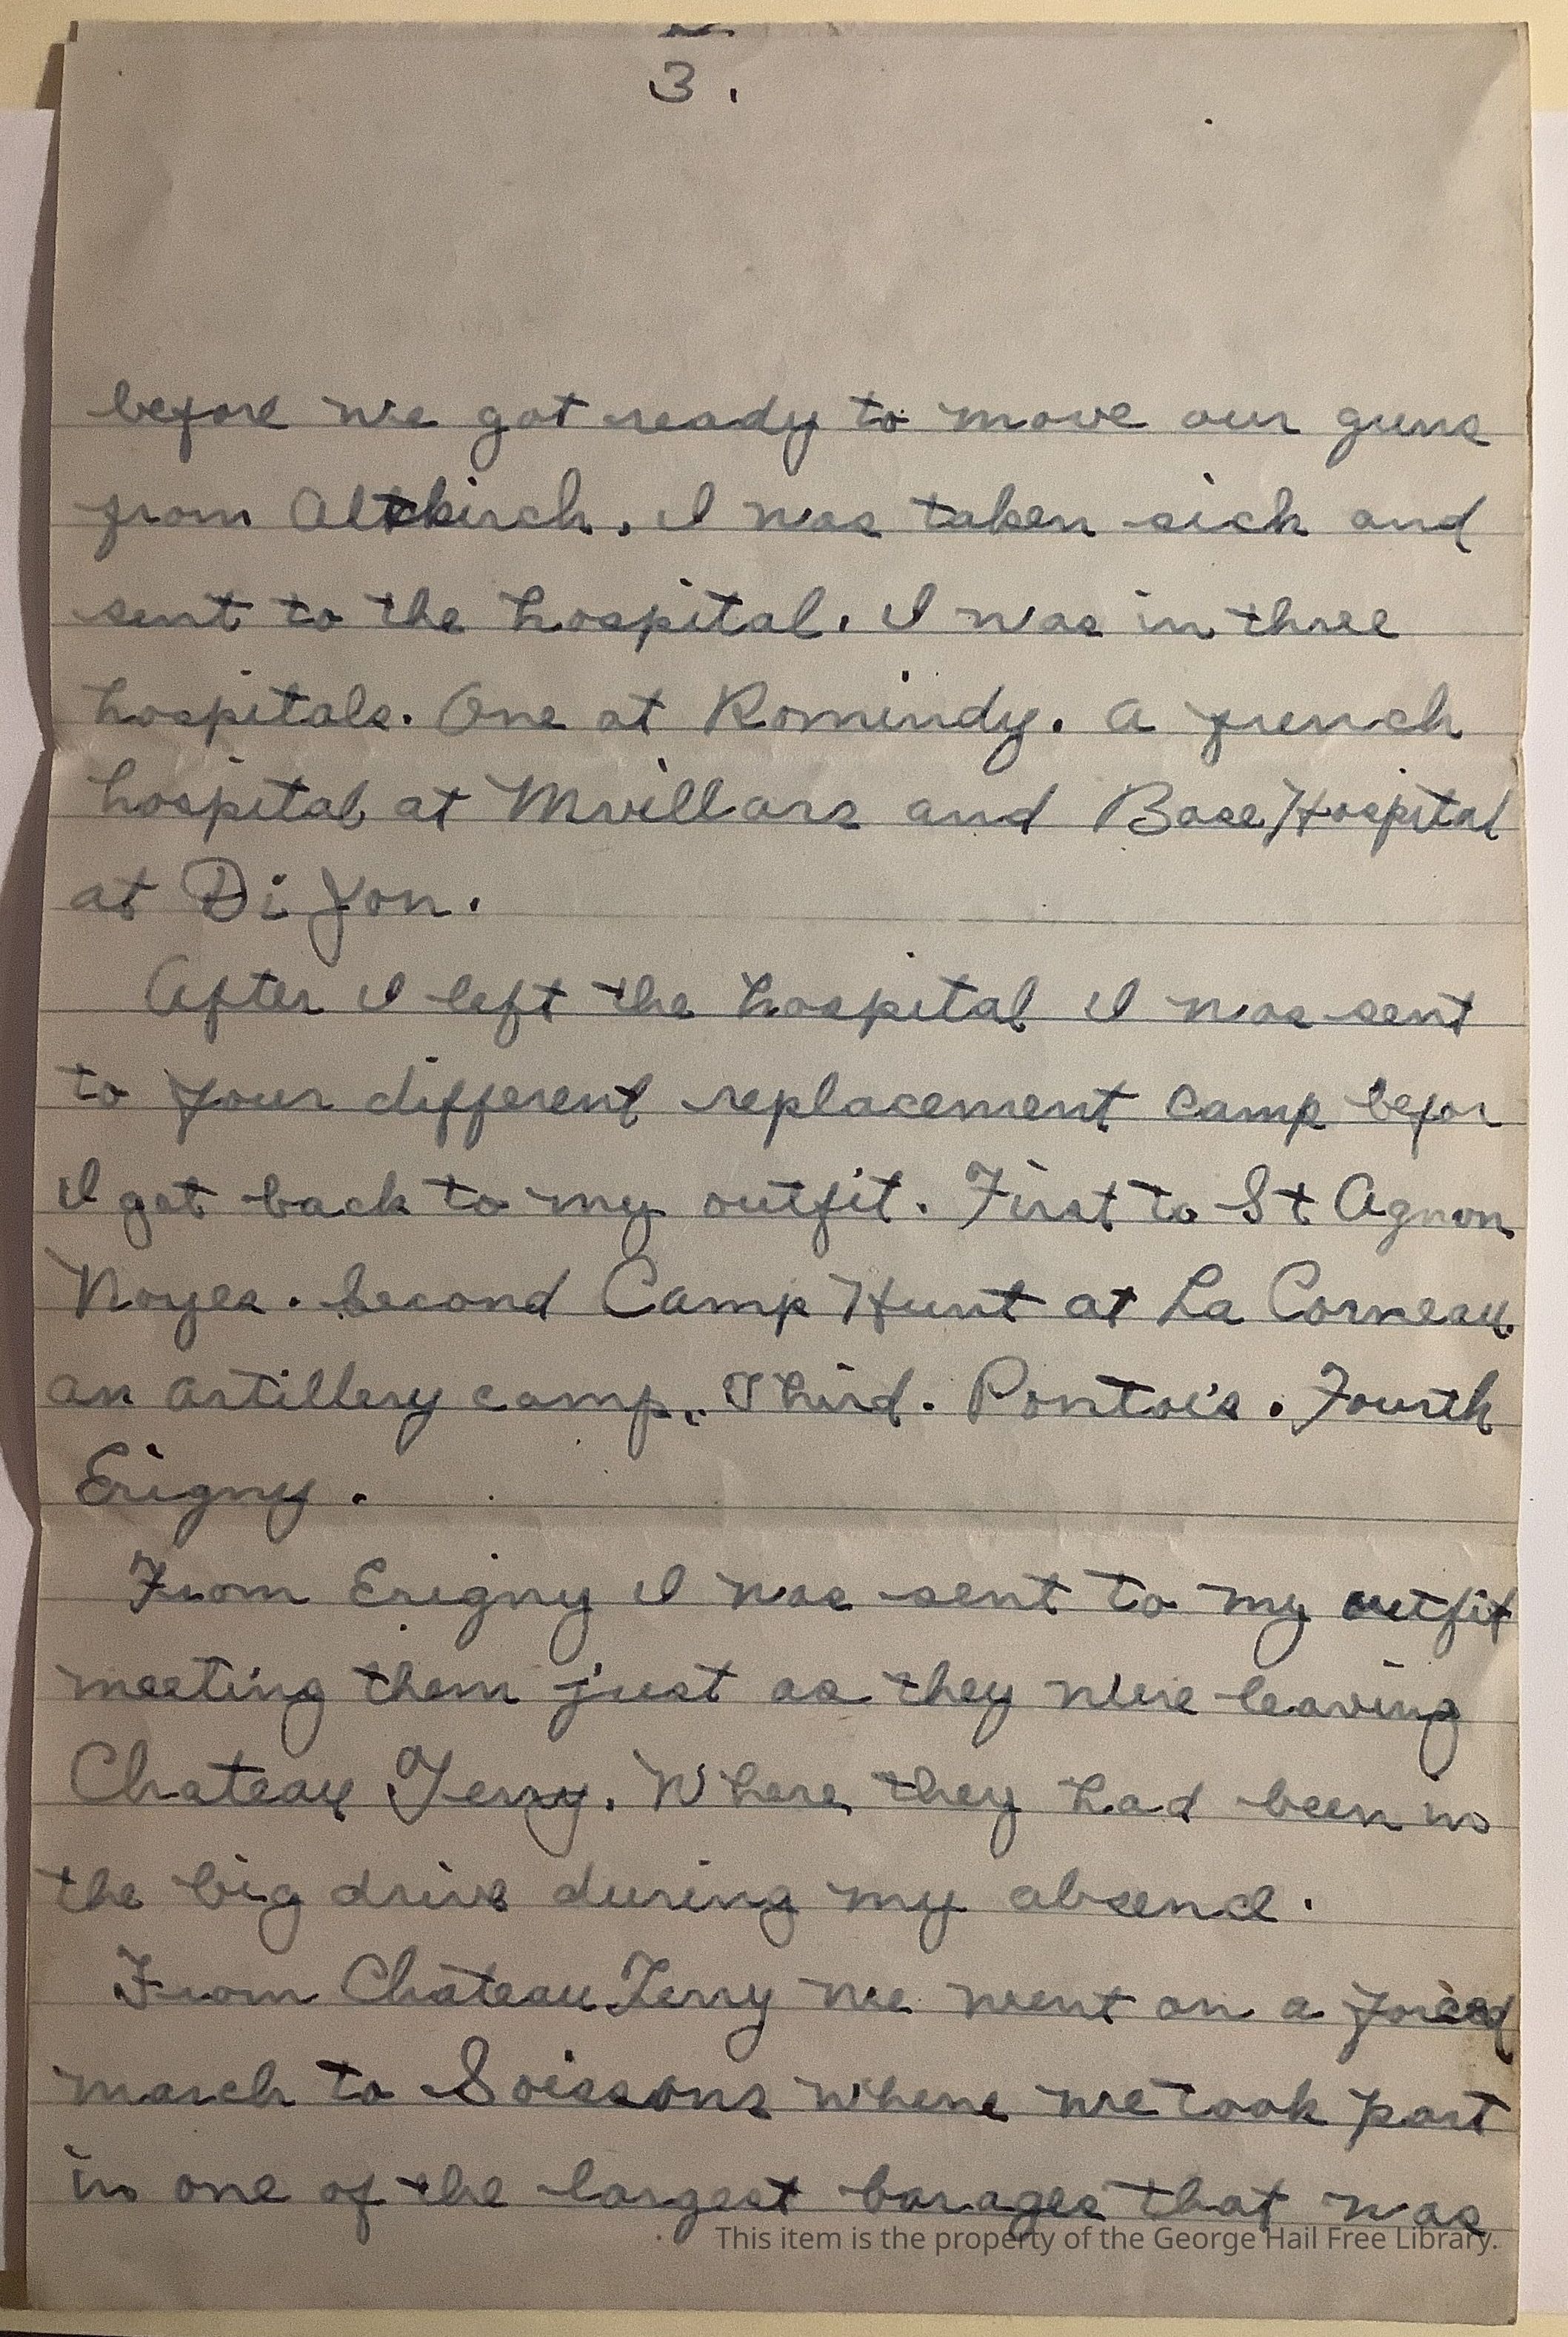 3.
before we got ready to move our guns
from Altkirch. I was taken sick and
sent to the hospital. I was in three
hospitals. One at Romindy. a french
hospital at Mvillars and Base Hospital
at Di Jon.
After I left the hospital I was sent
to four different replacement camp befor
I get back to my outfit. First to St Agnon
Noyes. Second Camp Hunt at La Corneau.
an artillery camp. Third. Pontois. Fourth
Erigny.
From Erigny I was sent to my outfit
meeting them just as they were leaving
Chateau Terry. Where they had been in
the big drive during my absence.
From Chateau Terry we went on a forced
march to Soissons where we took part
in one of the largest barages that was
This item is the property of the George Hail Free Library.